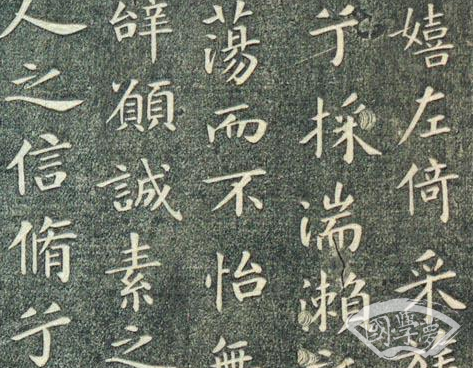 嬉左倚采
兮採湍瀨
蕩而不怡無
辭願誠素之
人之信脩兮
國學夢